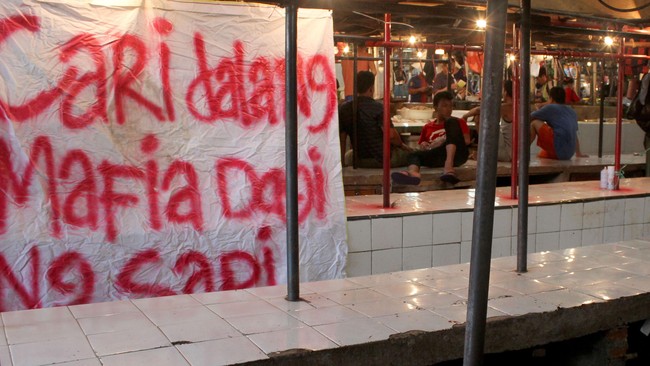 Cari dalang
Mafia Dagi
ng sapi